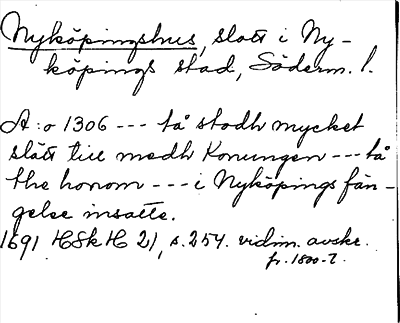 Nyköpingshus, slott i Ny-
köpings stad, Söderm. l.
A:o 1306 --- tå stodh mycket
slätt till medh Konungen --- tå
the honom --- i Nyköpings fän-
gelse insatte.
1691 HSkH 21, s. 254. vidim. avskr.
fr. 1800-t.